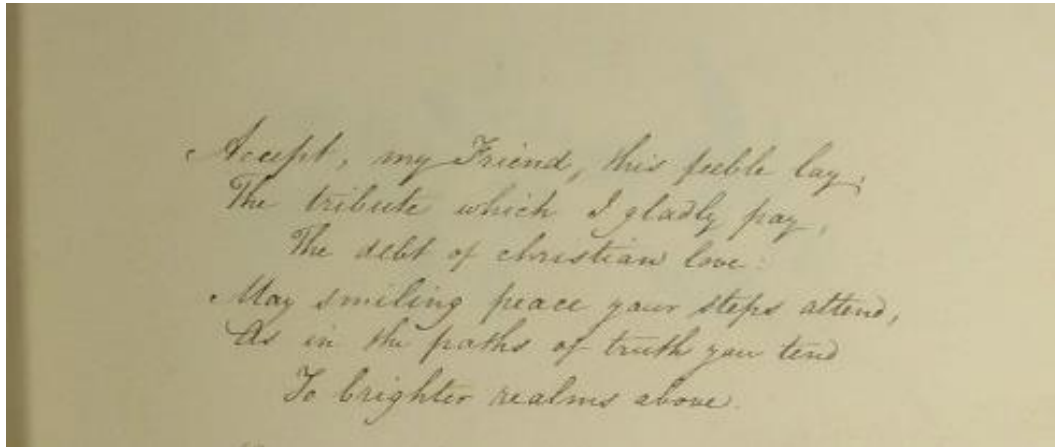 Accept, my Friend, this feeble lay;
The tribute which I gladly pay,
The debt of christian love:
May smiling peace your steps attend,
As in the paths of truth you tend
To brighter realms above.